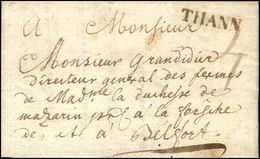 A Monsieur
THANN
Monsieur Grandidier
directeur general des fermes
de Madme la duchesse de
mazarin à la forge
de et à Belfort.